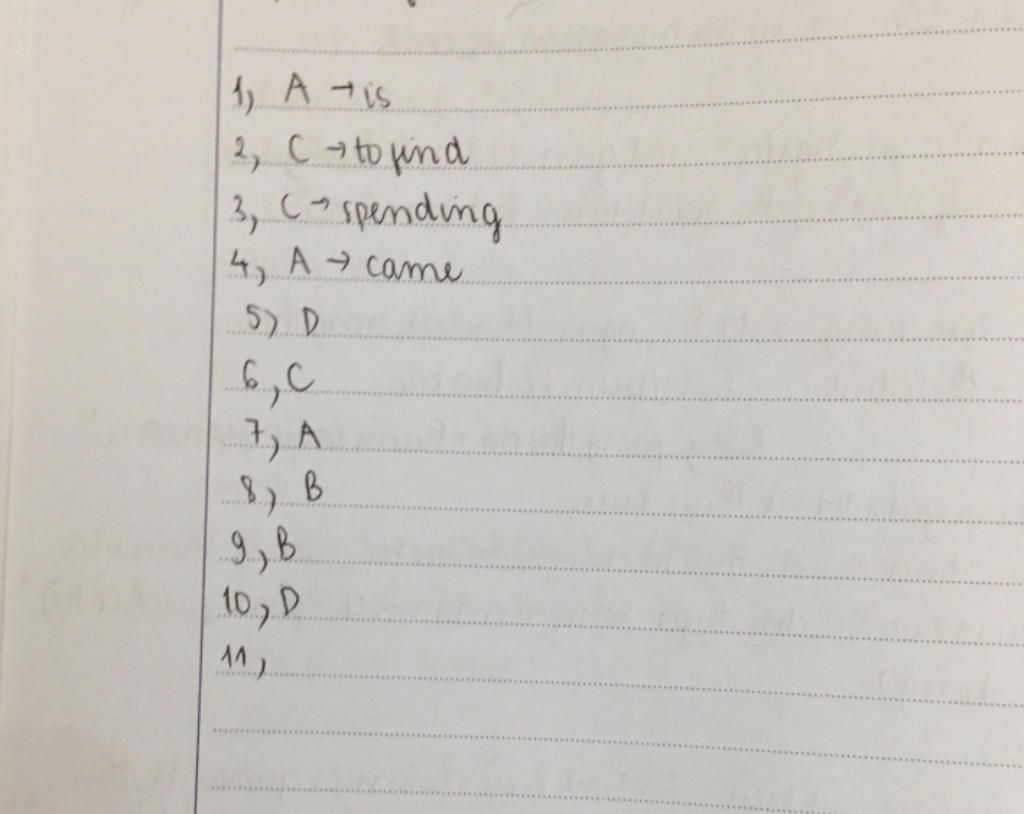 1, A → is
2, C → to find
3, C → spending
4, A → came
5, D
6, C
7, A
8, B
9, B
10, D
11,